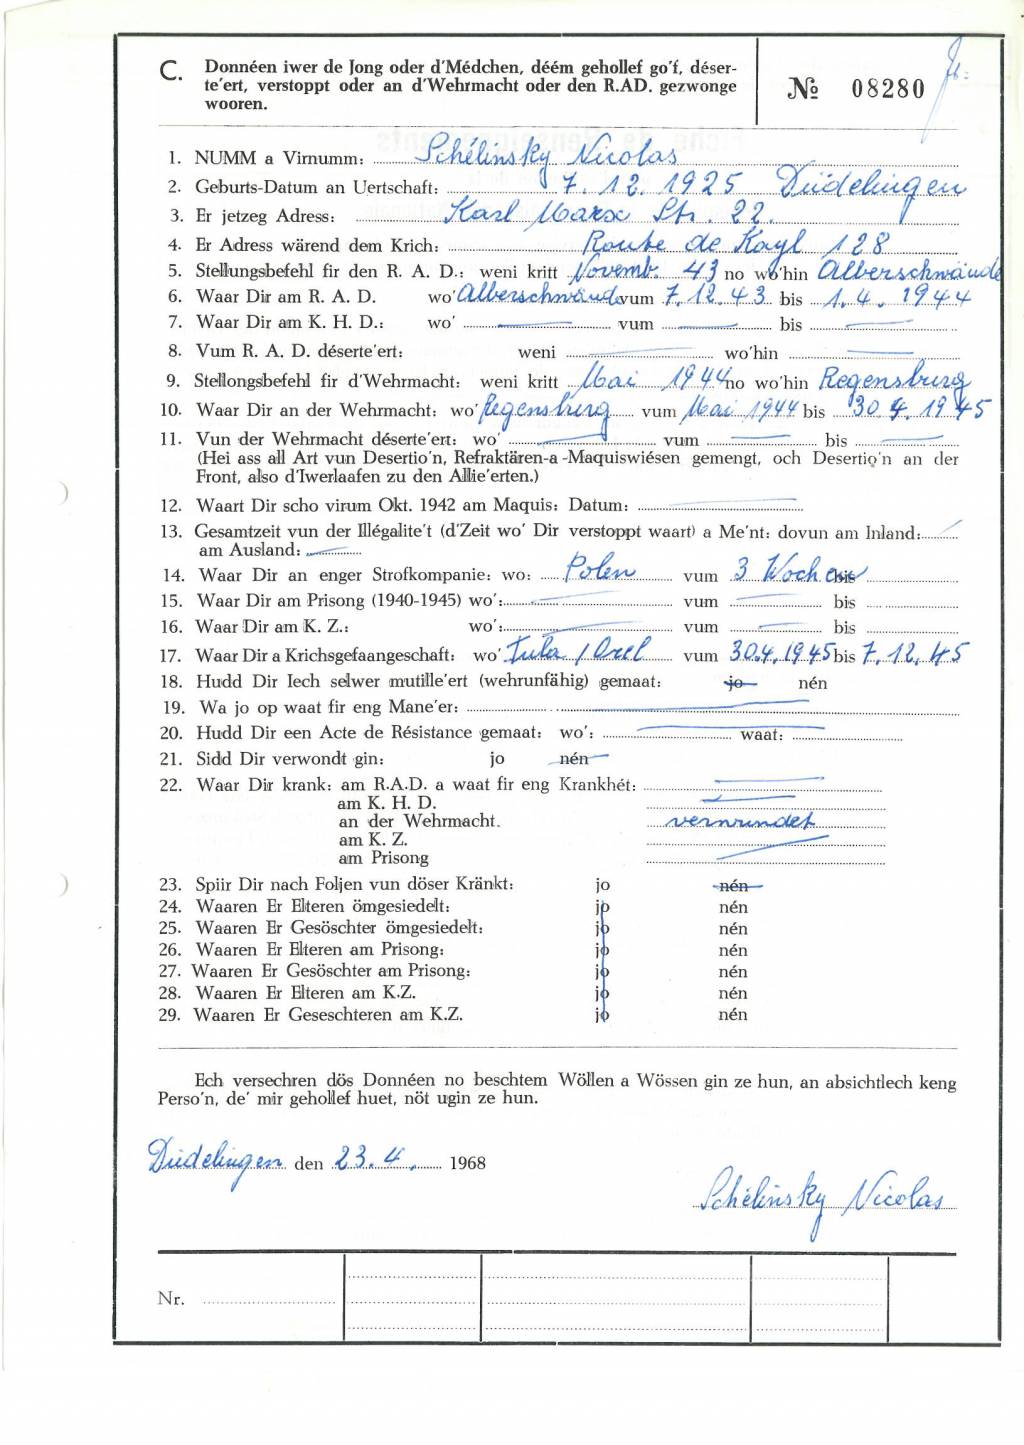 C. Donnéen iwer de Jong oder d'Médchen, déém gehollef go'f, déser-
te'ert, verstoppt oder an d'Wehrmacht oder den R.AD. gezwonge
wooren.
№ 08280
1. NUMM a Virnumm: Schélinsky Nicolas
2. Geburts-Datum an Uertschaft: 7.12.1925 Düdelingen
3. Er jetzeg Adress: Karl Marx Str. 22.
4. Er Adress wärend dem Krich: Route de Kayl 128
5. Stellungsbefehl fir den R. A. D.: weni kritt Novemb. 43 no wo'hin Alberschwände
6. Waar Dir am R. A. D. wo' Alberschwände vum 7.12.43 bis 1.4.1944
7. Waar Dir am K. H. D.: wo' vum bis
8. Vum R. A. D. déserte'ert: weni wo'hin
9. Stellongsbefehl fir d'Wehrmacht: weni kritt Mai 1944 no wo'hin Regensburg
10. Waar Dir an der Wehrmacht: wo' Regensburg vum Mai 1944 bis 30 4. 1945
11. Vun der Wehrmacht déserte'ert: wo' vum bis
(Hei ass all Art vun Desertio'n, Refraktären-a -Maquiswiésen gemengt, och Desertio'n an der
Front, also d'Iwerlaafen zu den Allie'erten.)
12. Waart Dir scho virum Okt. 1942 am Maquis: Datum:
13. Gesamtzeit vun der Illégalite't (d'Zeit wo' Dir verstoppt waart) a Me'nt: dovun am Inland:
am Ausland:
14. Waar Dir an enger Strofkompanie: wo: Polen vum 3 Wochen bis
15. Waar Dir am Prisong (1940-1945) wo': vum bis
16. Waar Dir am K. Z.: wo': vum bis
17. Waar Dir a Krichsgefaangeschaft: wo' Tula / Orel vum 30.4.1945 bis 7.12.45
18. Hudd Dir Iech selwer mutille'ert (wehrunfähig) gemaat: jo nén
19. Wa jo op waat fir eng Mane'er:
20. Hudd Dir een Acte de Résistance gemaat: wo': waat:
21. Sidd Dir verwondt gin: jo nén
22. Waar Dir krank: am R.A.D. a waat fir eng Krankhét:
am K. H. D.
an der Wehrmacht. verwundet
am K. Z.
am Prisong
23. Spiir Dir nach Foljen vun döser Kränkt: jo nén
24. Waaren Er Elteren ömgesiedelt: jo nén
25. Waaren Er Gesöschter ömgesiedelt: jo nén
26. Waaren Er Elteren am Prisong: jo nén
27. Waaren Er Gesöschter am Prisong: jo nén
28. Waaren Er Elteren am K.Z. jo nén
29. Waaren Er Geseschteren am K.Z. jo nén
Ech versechren dös Donnéen no beschtem Wöllen a Wössen gin ze hun, an absichtlech keng
Perso'n, de' mir gehollef huet, nöt ugin ze hun.
Düdelingen den 23.4. 1968
Schélinsky Nicolas
Nr.